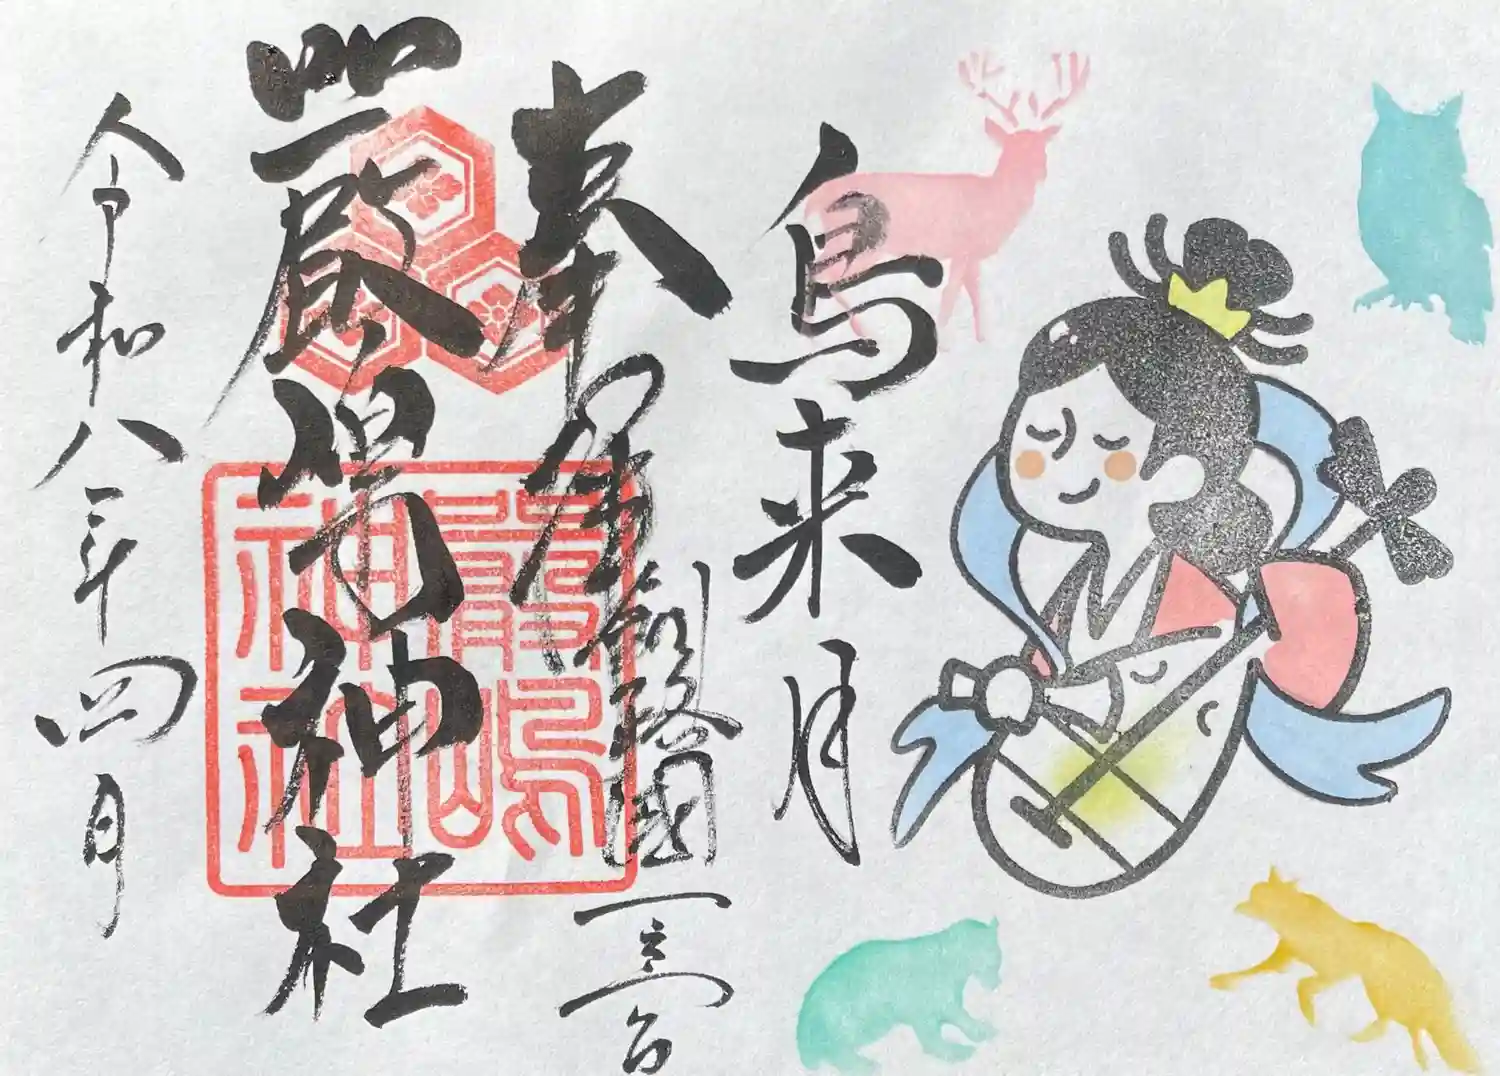 鳥来月
奉拝
釧路國一之宮
厳島神社
嚴嶋
神社
令和八年四月